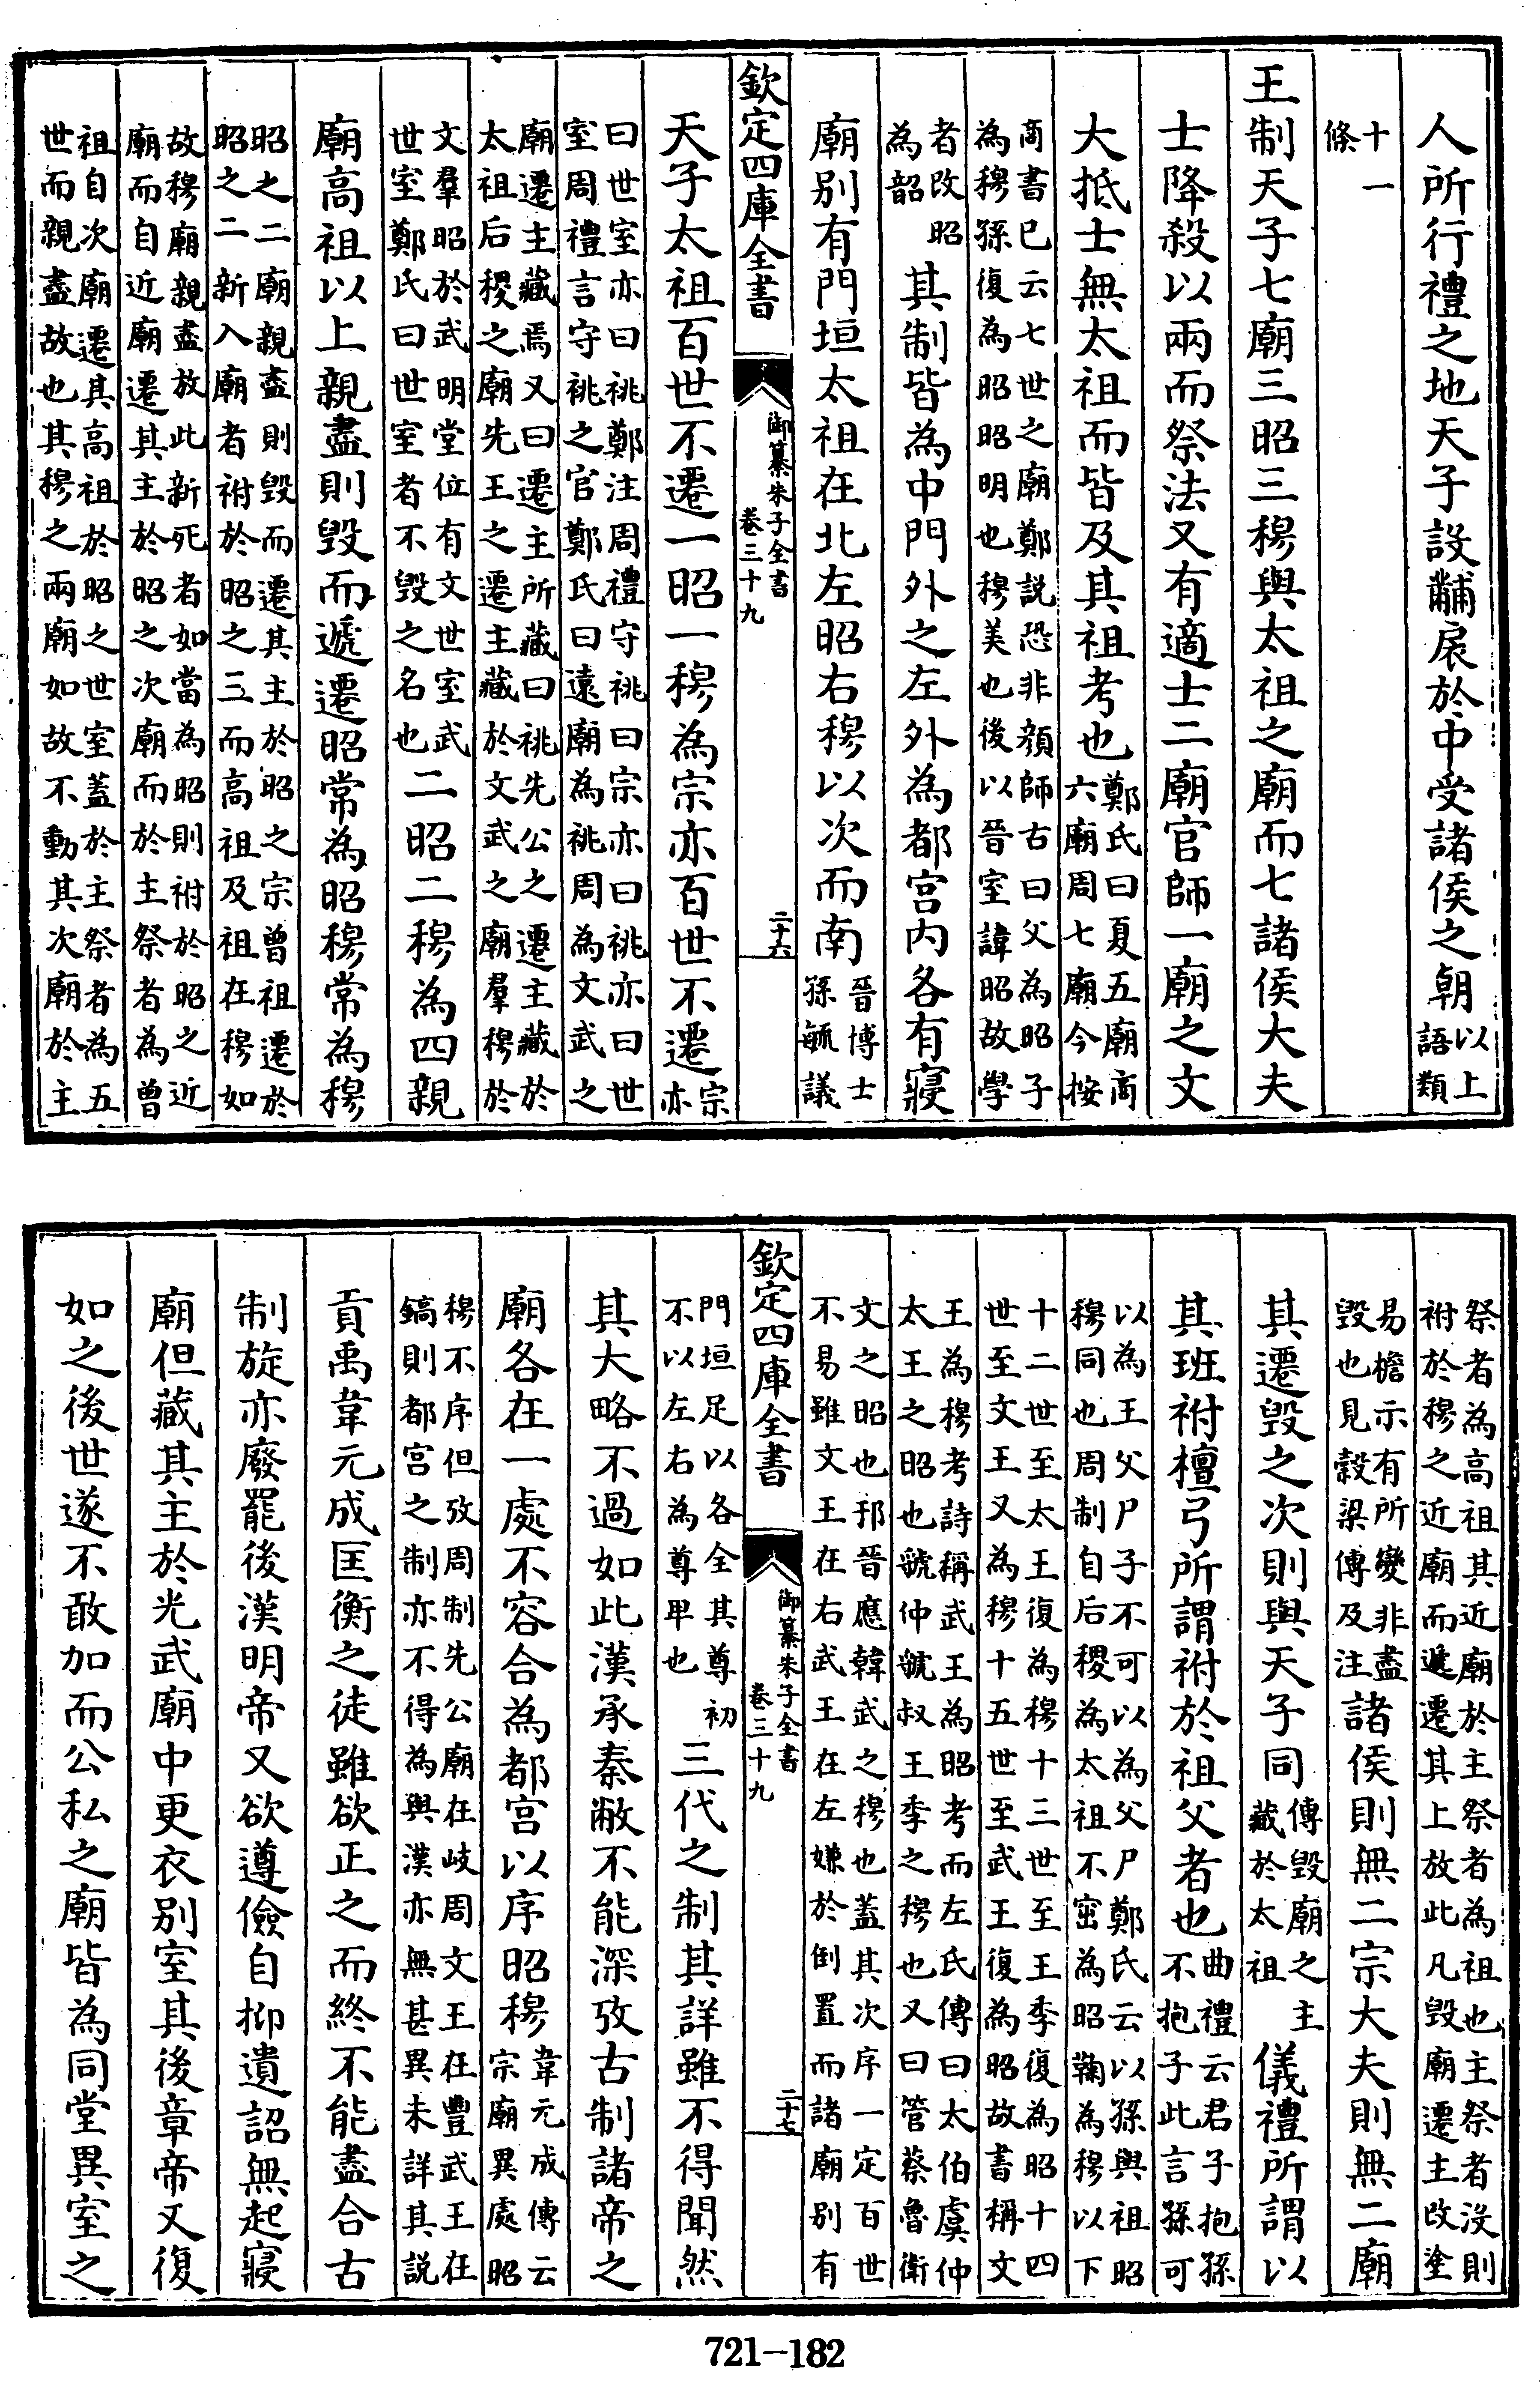 人所行禮之地天子設黼扆於中受諸侯之朝以上語類
十一條
王制天子七廟三昭三穆與太祖之廟而七諸侯大夫
士降殺以兩而祭法又有適士二廟官師一廟之文
大抵士無太祖而皆及其祖考也鄭氏曰夏五廟商六廟周七廟今按
商書已云七世之廟鄭説恐非顔師古曰父為昭子
為穆孫復為昭昭明也穆美也後以晉室諱昭故學
者改昭為韶其制皆為中門外之左外為都宫内各有寢
廟别有門垣太祖在北左昭右穆以次而南晉博士孫毓議
欽定四庫全書
御纂朱子全書
卷三十九
二十六
天子太祖百世不遷一昭一穆為宗亦百世不遷宗亦
曰世室亦曰祧鄭注周禮守祧曰宗亦曰祧亦曰世
室周禮言守祧之官鄭氏曰遠廟為祧周為文武之
廟遷主藏焉又曰遷主所藏曰祧先公之遷主藏於
太祖后稷之廟先王之遷主藏於文武之廟羣穆於
文羣昭於武明堂位有文世室武世室鄭氏曰世室者不毁之名也二昭二穆為四親
廟高祖以上親盡則毁而遞遷昭常為昭穆常為穆
昭之二廟親盡則毁而遷其主於昭之宗曾祖遷於
昭之二新入廟者祔於昭之三而高祖及祖在穆如
故穆廟親盡放此新死者如當為昭則祔於昭之近
廟而自近廟遷其主於昭之次廟而於主祭者為曾
祖自次廟遷其高祖於昭之世室蓋於主祭者為五
世而親盡故也其穆之兩廟如故不動其次廟於主
祭者為高祖其近廟於主祭者為祖也主祭者没則
祔於穆之近廟而遞遷其上放此凡毁廟遷主改塗
易檐示有所變非盡毁也見穀梁傳及注諸侯則無二宗大夫則無二廟
其遷毁之次則與天子同傳毁廟之主藏於太祖儀禮所謂以
其班祔檀弓所謂祔於祖父者也曲禮云君子抱孫不抱子此言孫可
以為王父尸子不可以為父尸鄭氏云以孫與祖昭
穆同也周制自后稷為太祖不窋為昭鞠為穆以下
十二世至太王復為穆十三世至王季復為昭十四
世至文王又為穆十五世至武王復為昭故書稱文
王為穆考詩稱武王為昭考而左氏傳曰太伯虞仲
太王之昭也虢仲虢叔王季之穆也又曰管蔡魯衛
文之昭也邘晉應韓武之穆也蓋其次序一定百世
不易雖文王在右武王在左嫌於倒置而諸廟别有
欽定四庫全書
御纂朱子全書
卷三十九
二十七
門垣足以各全其尊初不以左右為尊卑也三代之制其詳雖不得聞然
其大略不過如此漢承秦敝不能深攷古制諸帝之
廟各在一處不容合為都宫以序昭穆韋元成傳云宗廟異處昭
穆不序但攷周制先公廟在岐周文王在豐武王在
鎬則都宫之制亦不得為與漢亦無甚異未詳其説
貢禹韋元成匡衡之徒雖欲正之而終不能盡合古
制旋亦廢罷後漢明帝又欲遵儉自抑遺詔無起寢
廟但藏其主於光武廟中更衣别室其後章帝又復
如之後世遂不敢加而公私之廟皆為同堂異室之
721-182